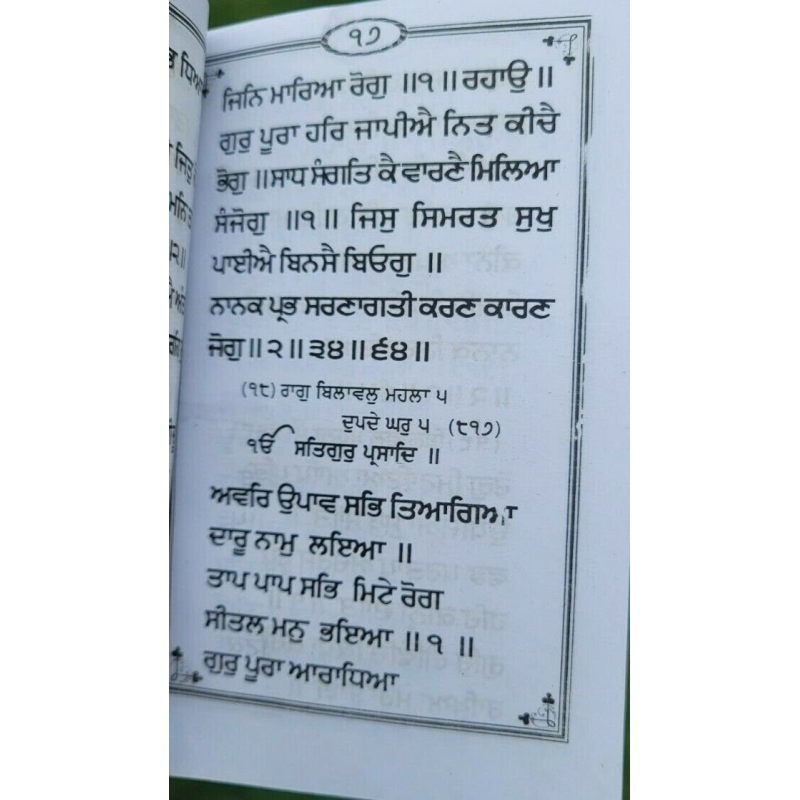 ੧੭
ਜਿਨਿ ਮਾਰਿਆ ਰੋਗੁ ॥੧॥ ਰਹਾਉ॥
ਗੁਰੁ ਪੂਰਾ ਹਰਿ ਜਾਪੀਐ ਨਿਤ ਕੀਚੈ
ਭੋਗੁ ॥ਸਾਧ ਸੰਗਤਿ ਕੈ ਵਾਰਣੈ ਮਿਲਿਆ
ਸੰਜੋਗੁ ॥੧॥ ਜਿਸੁ ਸਿਮਰਤ ਸੁਖੁ
ਪਾਈਐ ਬਿਨਸੈ ਬਿਓਗੁ ॥
ਨਾਨਕ ਪ੍ਰਭ ਸਰਣਾਗਤੀ ਕਰਣ ਕਾਰਣ
ਜੋਗੁ॥੨॥੩੪॥੬੪॥
(੧੮) ਰਾਗੁ ਬਿਲਾਵਲੁ ਮਹਲਾ ੫
ਦੁਪਦੇ ਘਰੁ ੫ (੮੧੭)
ੴ ਸਤਿਗੁਰੁ ਪ੍ਰਸਾਦਿ ॥
ਅਵਰਿ ਉਪਾਵ ਸਭਿ ਤਿਆਗਿਆ
ਦਾਰੂ ਨਾਮੁ ਲਇਆ ॥
ਤਾਪ ਪਾਪ ਸਭਿ ਮਿਟੇ ਰੋਗ
ਸੀਤਲ ਮਨੁ ਭਇਆ ॥੧॥
ਗੁਰੁ ਪੂਰਾ ਆਰਾਧਿਆ